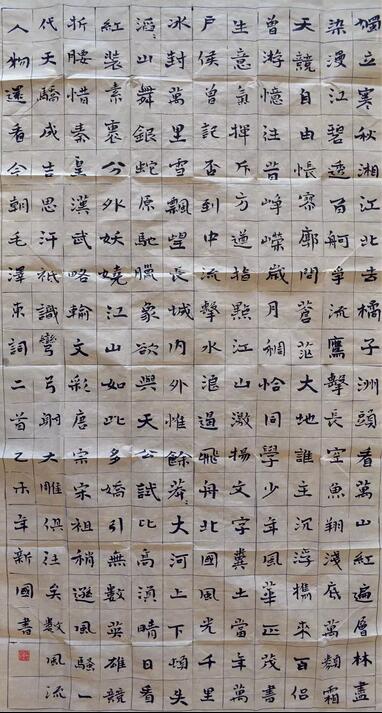 獨立寒秋湘江北去橘子洲頭看萬山紅遍層林盡
染漫江碧透百舸爭流鷹擊長空魚翔淺底萬類霜
天競自由悵寥廓問蒼茫大地誰主沉浮攜來百侶
曾游憶往昔崢嶸歲月稠恰同學少年風華正茂書
生意氣揮斥方遒指點江山激揚文字糞土當年萬
戶侯曾記否到中流擊水浪遏飛舟北國風光千里
冰封萬里雪飄望長城內外惟餘莽〻大河上下頓失
滔〻山舞銀蛇原馳臘象欲與天公試比高須晴日看
紅裝素裹分外妖嬈江山如此多嬌引無數英雄競
折腰惜秦皇漢武略輸文彩唐宗宋祖稍遜風騷一
代天驕成吉思汗祇識彎弓射大雕俱往矣數風流
人物還看今朝毛澤東詞二首乙未年新國書